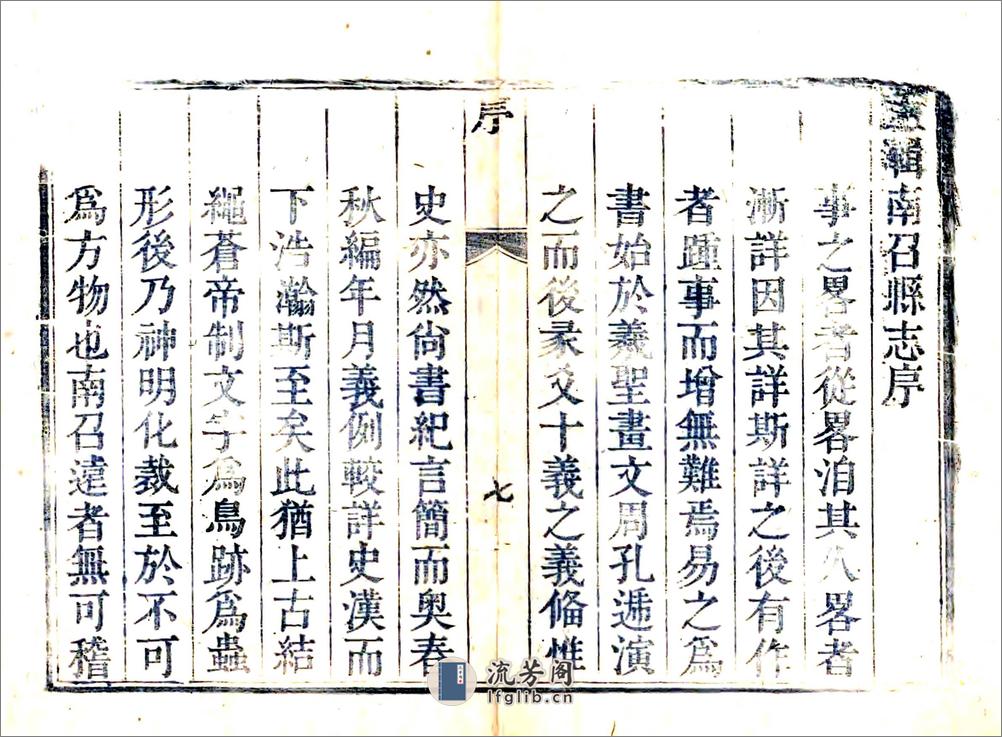 重輯南召縣志序
事之畧者從畧洎其久畧者
漸詳因其詳斯詳之後有作
者踵事而增無難焉易之爲
書始於羲聖畫文周孔遞演
之而後彖爻十義之義俻惟
序
七
史亦然尙書紀言簡而奥春
秋編年月義例較詳史漢而
下浩瀚斯至矣此猶上古結
繩蒼帝制文字爲鳥跡爲蟲
形後乃神明化裁至於不可
爲方物也南召遠者無可稽
流芳阁
lfglib.cn